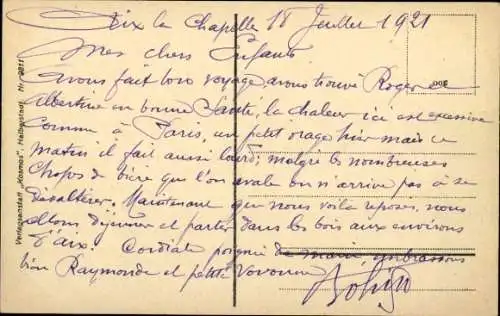 Aix la Chapelle 18 Juillet 1921
Mes chers Enfants
avons fait bon voyage avons trouvé Roger et
Albertine en bonne Santé, la chaleur ici est excessive
comme à Paris, un petit orage hier mais ce
matin il fait aussi lourd, malgré les nombreuses
Chopes de bière que l'on avale on n'arrive pas à se
désaltérer. Maintenant que nous voilà reposés, nous
allons déjeuner et partir dans les bois aux environs
d'Aix. Cordiale poignée de main, embrassons
bien Raymonde et petite
Verlagsanstalt „Kosmos", Halberstadt. Nr. 9911